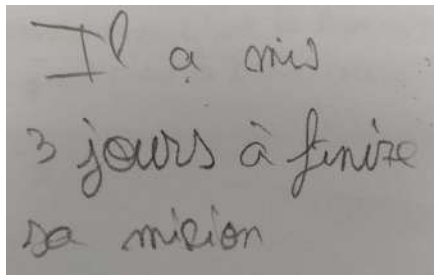 Il a mis
3 jours à finire
sa mision